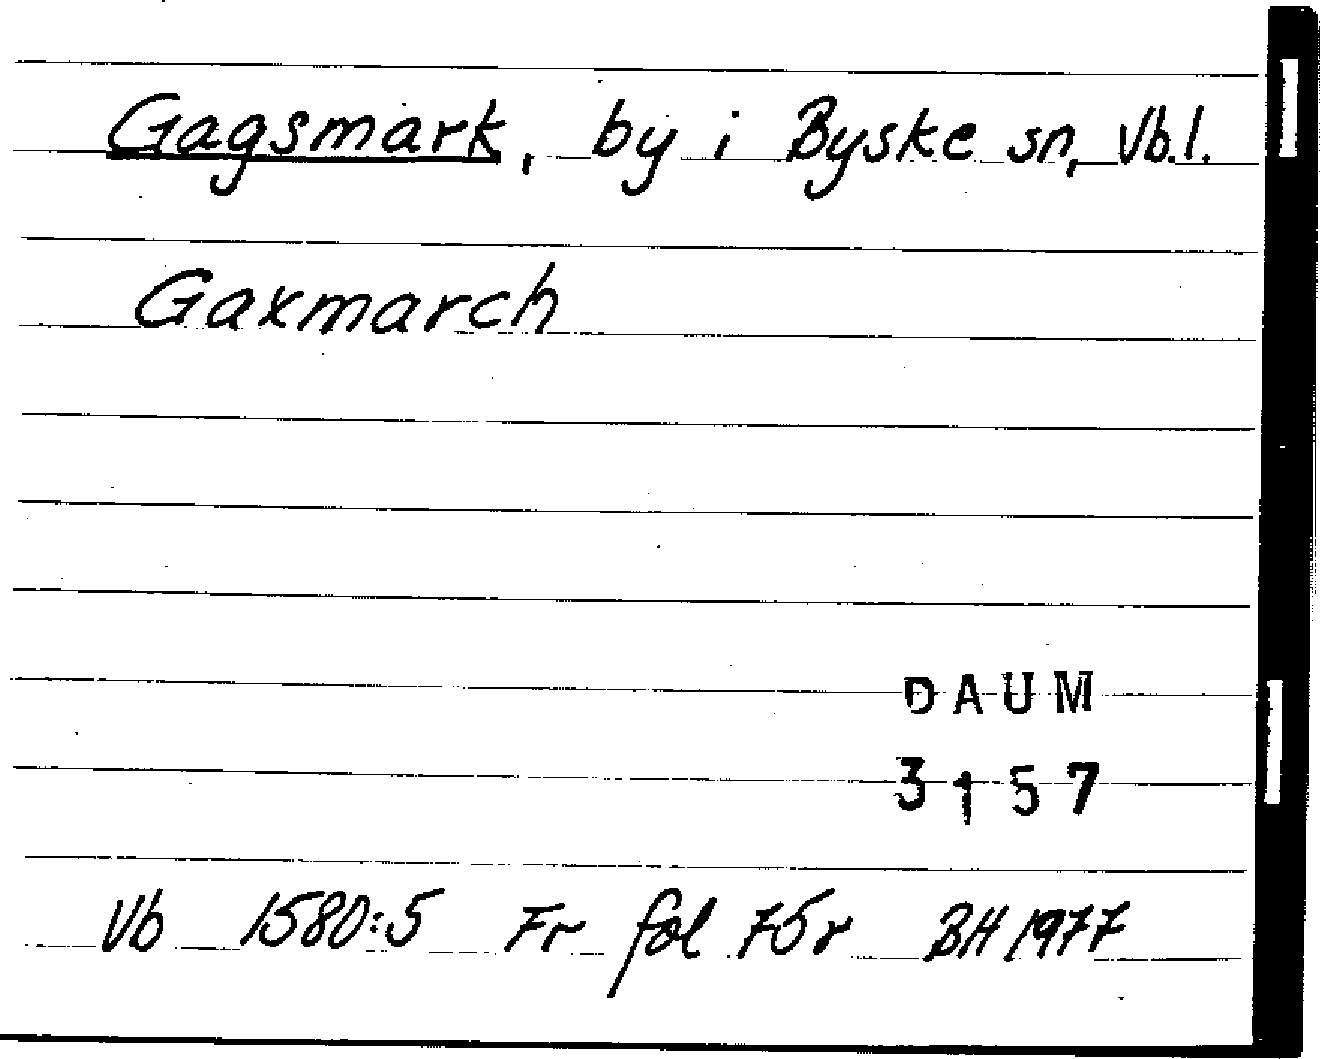 Gagsmark, by i Byske sn, Vb.l.
Gaxmarch
DAUM
3157
Vb 1580:5 Fr fol 75r BH 1977